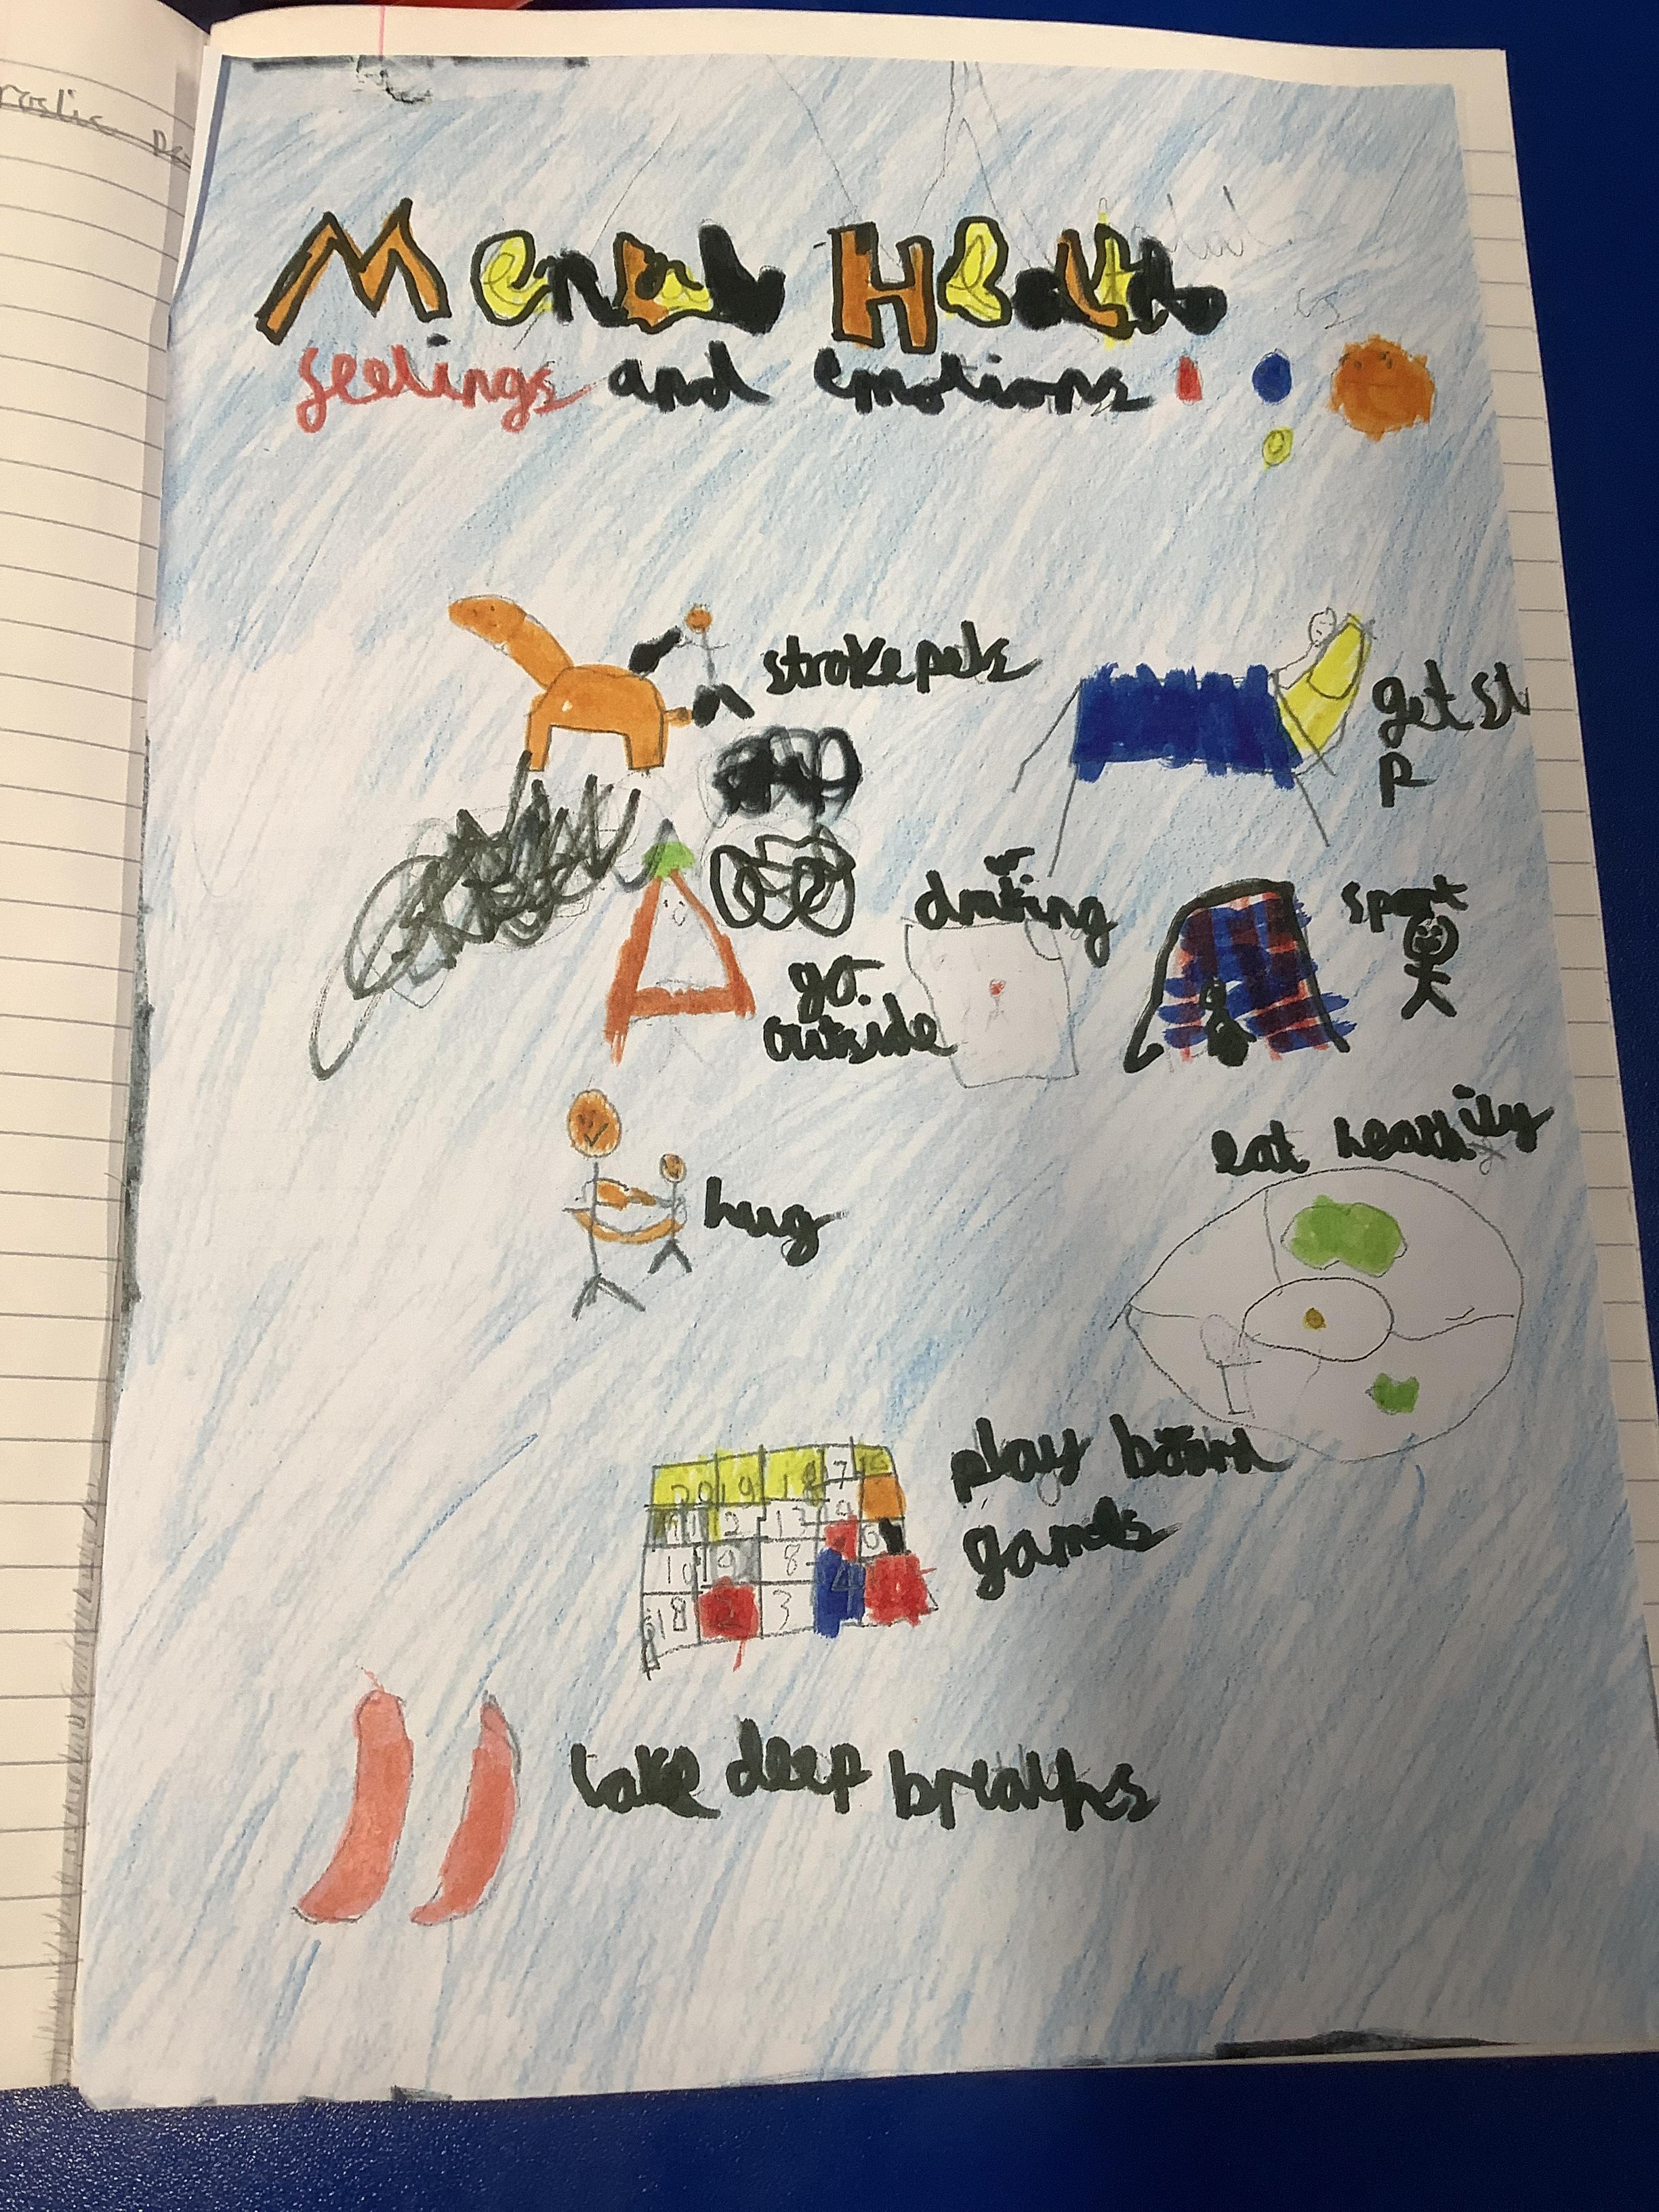 Mental Health
feelings and emotions
stroke pets
get sl
p
drawing
sport
go
outside
eat healthily
hug
play board
games
20 19 18 7
11 12 13
10 9 8
18 2 3 4 1
take deep breaths